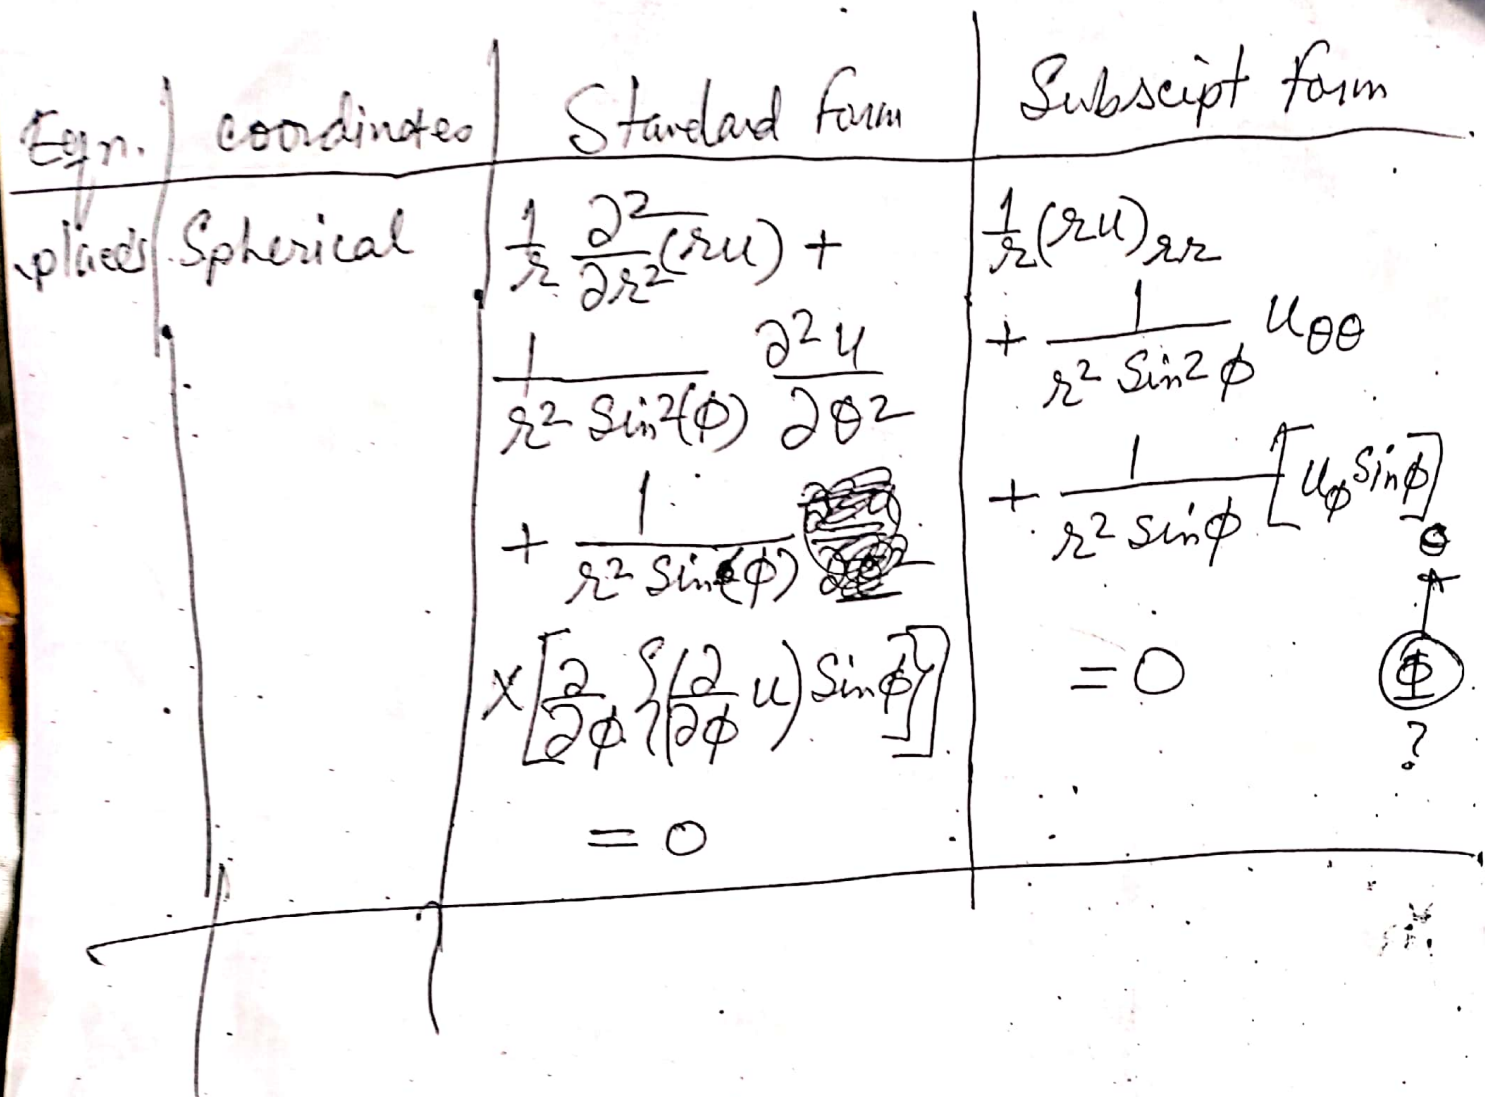 Eqn. coordinates Standard form Subscipt form
Spherical
1/r ∂²/∂r² (ru) +
1/(r² Sin²(φ)) ∂²u/∂θ²
+ 1/(r² Sin(φ))
×[∂/∂φ {(∂/∂φ u) Sinφ}]
= 0
1/r (ru)rr
+ 1/(r² Sin²φ) uθθ
+ 1/(r² Sinφ) [uφ Sinφ]θ
= 0
φ
?